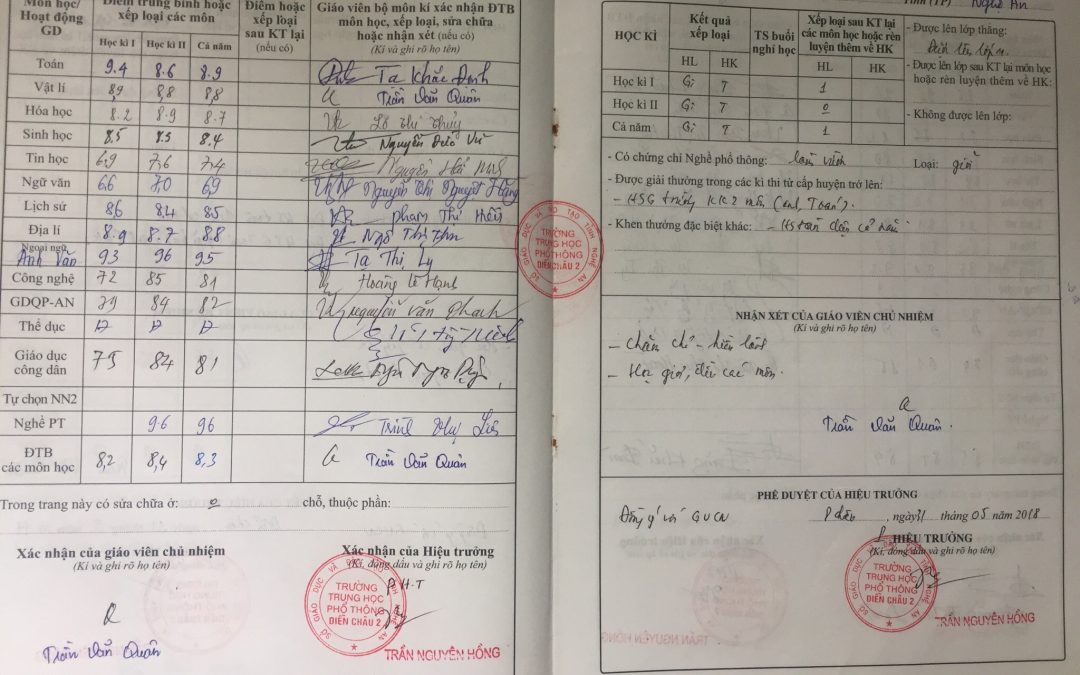 Môn học/ Hoạt động GD
Điểm trung bình hoặc xếp loại các môn
Học kì I Học kì II Cả năm
Điểm hoặc xếp loại sau KT lại (nếu có)
Giáo viên bộ môn kí xác nhận ĐTB môn học, xếp loại, sửa chữa hoặc nhận xét (nếu có)
(Kí và ghi rõ họ tên)
Toán 9.4 8.6 8.9 Tạ Khắc Định
Vật lí 8,9 8,8 8,8 Trần Văn Quân
Hóa học 8.2 8.9 8.7 Thủy
Sinh học 8.5 8.4 Nguyễn
Tin học 6.9 7.6 7.4 Nguyễn
Ngữ văn 66 70 69 Nguyễn Thị Nguyệt Hằng
Lịch sử 86 84 85 phạm Thị
Địa lí 8.9 8.7 8.8 Ngô Thị
Ngoại ngữ
Anh Văn 93 96 95 Tạ Thị Ly
Công nghệ 72 85 81 Hoàng
GDQP-AN 79 84 82 nguyễn văn
Thể dục Đ Đ Đ
Giáo dục công dân 75 84 81
Tự chọn NN2
Nghề PT 96 96 Trịnh
ĐTB các môn học 8,2 8,4 8,3 Trần Văn Quân
Trong trang này có sửa chữa ở: 0 chỗ, thuộc phần:
Xác nhận của giáo viên chủ nhiệm
(Kí và ghi rõ họ tên)
Trần Văn Quân
Xác nhận của Hiệu trưởng
(Kí, đóng dấu và ghi rõ họ tên)
P.H.T
SỞ GIÁO DỤC VÀ ĐÀO TẠO TỈNH NGHỆ AN
TRƯỜNG
TRUNG HỌC
PHỔ THÔNG
DIỄN CHÂU 2
TRẦN NGUYÊN HỒNG
SỞ GIÁO DỤC VÀ ĐÀO TẠO TỈNH NGHỆ AN
TRƯỜNG
TRUNG HỌC
PHỔ THÔNG
DIỄN CHÂU 2
Nghệ An
HỌC KÌ
Kết quả xếp loại
HL HK
TS buổi nghỉ học
Xếp loại sau KT lại các môn học hoặc rèn luyện thêm về HK
HL HK
Học kì I Gi T 1
Học kì II Gi T 0
Cả năm Gi T 1
- Được lên lớp thẳng:
- Được lên lớp sau KT lại môn học hoặc rèn luyện thêm về HK:
- Không được lên lớp:
- Có chứng chỉ Nghề phổ thông: làm vườn Loại: giỏi
- Được giải thưởng trong các kì thi từ cấp huyện trở lên:
- HSG trường KK 2 môn (Anh, Toán).
- Khen thưởng đặc biệt khác: - HS toàn diện cả năm
NHẬN XÉT CỦA GIÁO VIÊN CHỦ NHIỆM
(Kí và ghi rõ họ tên)
- Chăm chỉ - hiền lành
- Học giỏi, đều các môn.
Trần Văn Quân.
PHÊ DUYỆT CỦA HIỆU TRƯỞNG
Đồng ý với GVCN
, ngày 31 tháng 05 năm 2018
HIỆU TRƯỞNG
(Kí, đóng dấu và ghi rõ họ tên)
SỞ GIÁO DỤC VÀ ĐÀO TẠO TỈNH NGHỆ AN
TRƯỜNG
TRUNG HỌC
PHỔ THÔNG
DIỄN CHÂU 2
TRẦN NGUYÊN HỒNG